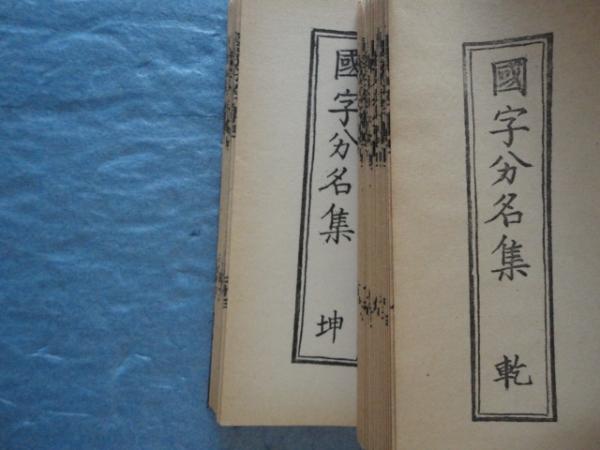 國字分名集 乾
國字分名集 坤